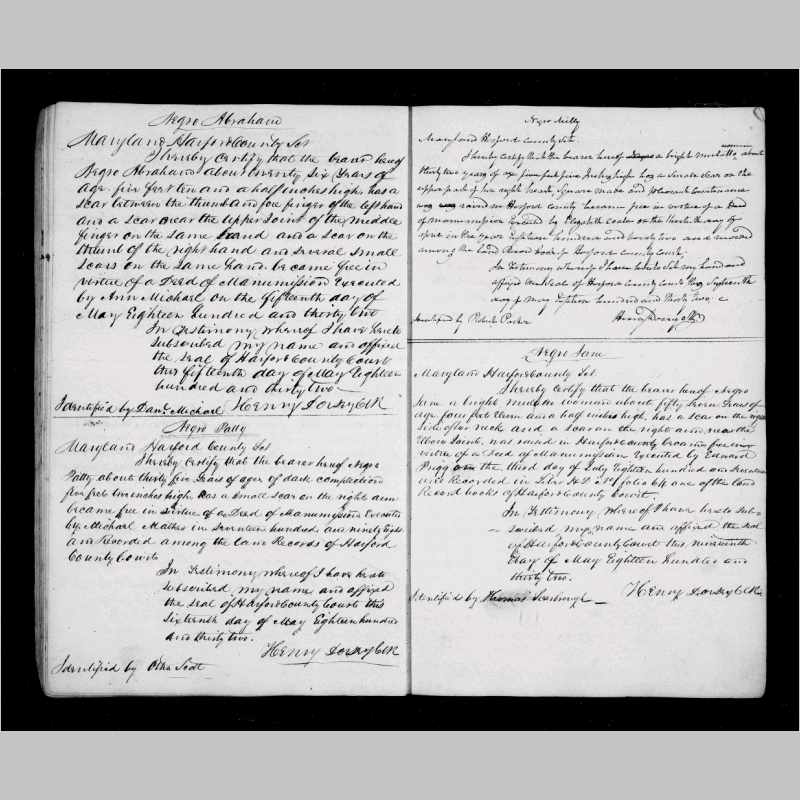 Negro Abraham
Maryland Harford County Sct
I hereby Certify that the bearer hereof
Negro Abraham about twenty Six Years of
age five feet ten and a half inches high, has a
scar between the thumb and fore finger of the left hand
and a scar near the upper Joint of the middle
finger on the same hand and a scar on the
thumb of the right hand and several small
scars on the same hand. became free in
virtue of a Deed of Manumission Executed
by Ann Michael on the fifteenth day of
May Eighteen hundred and thirty two
In Testimony whereof I have hereto
subscribed my name and affixed
the seal of Harford County Court
this fifteenth day of May Eighteen
hundred and thirty two
Identified by Danl Michael Henry Dorsey Clk
Negro Patty
Maryland Harford County Sct
I hereby Certify that the bearer hereof Negro
Patty about thirty five Years of age of dark complection
five feet two inches high has a small scar on the right arm
became free in virtue of a Deed of Manumission Executed
by Michael Mather in Seventeen hundred and ninety Eight
and Recorded among the land Records of Harford
County Court
In Testimony whereof I have hereto
subscribed my name and affixed
the seal of Harford County Court this
Sixteenth day of May Eighteen hundred
and thirty two.
Henry Dorsey Clk
Identified by Scott
Negro Milly
Maryland Harford County Sct.
I hereby Certify that the bearer hereof a bright mulatto woman about
thirty two years of age five feet five Inches high has a small scar on the
upper part of her right hand, Square made and pleasant Countenance
was raised in Harford County became free in virtue of a Deed
of manumission Executed by Elizabeth on the day of
in the year Eighteen hundred and twenty two and recorded
among the Land Record books of Harford County Court.
In Testimony whereof I have hereto Set my hand and
affixed the Seal of Harford County Court this Sixteenth
day of May Eighteen hundred and thirty two.
Identified by Robert Parker Henry Dorsey Clk
Negro Jane
Maryland Harford County Sct.
I hereby Certify that the bearer hereof Negro
Jane a bright mulatto woman about fifty seven Years of
age four feet eleven and a half inches high, has a scar on the right
side of her neck and a scar on the right arm near the
Elbow Joint, was raised in Harford County became free in
virtue of a Deed of Manumission Executed by Edward
on the third day of July Eighteen hundred and
and Recorded in Liber H D folio 64 one of the land
Record books of Harford County Court.
In Testimony whereof I have hereto sub-
-scribed my name and affixed the seal
of Harford County Court this nineteenth
day of May Eighteen hundred and
thirty two.
Henry Dorsey Clk
Identified by Thomas Scarborough